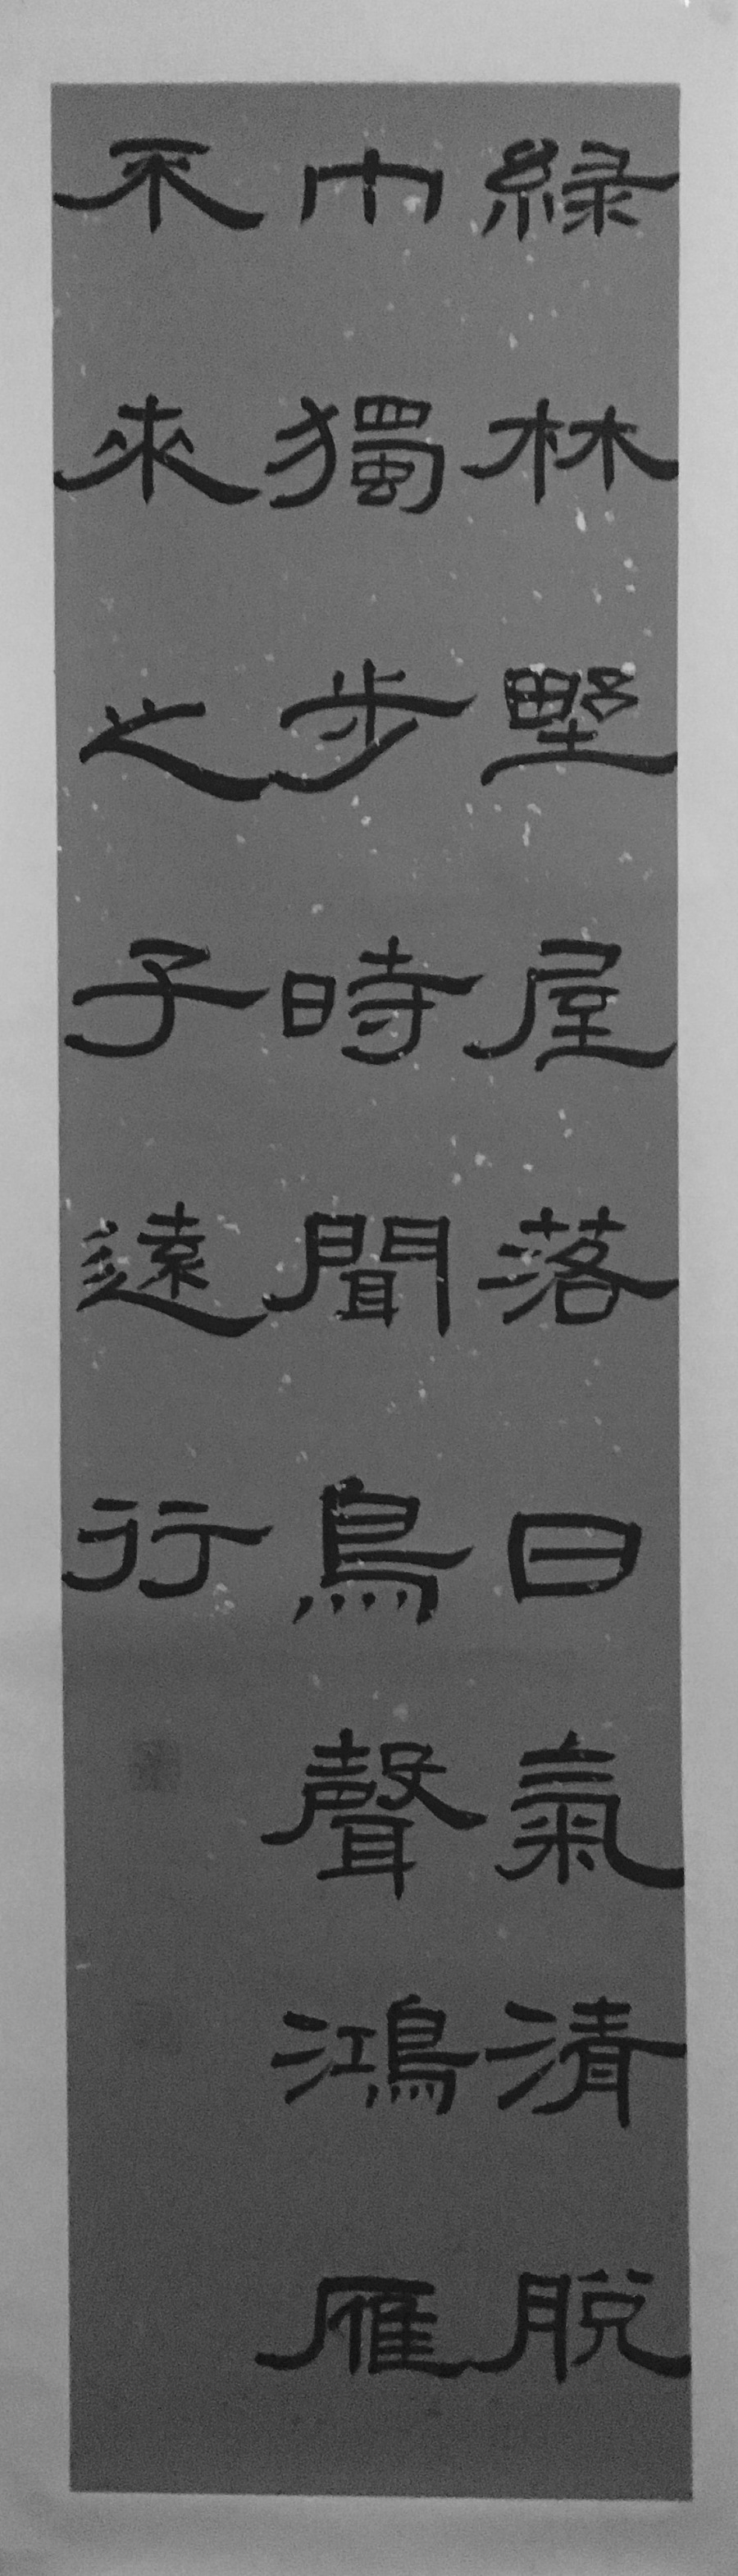 緑林墅屋落日氣清脫
巾獨步時聞鳥聲鴻雁
不來之子遠行